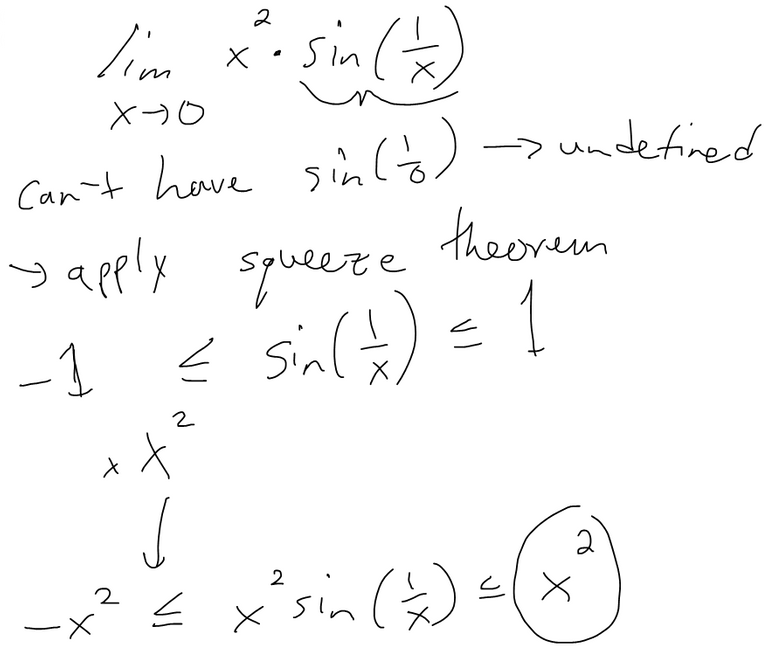 lim x→0 x² · sin(1/x)
can't have sin(1/0) → undefined
→ apply squeeze theorem
-1 ≤ sin(1/x) ≤ 1
× x²
↓
-x² ≤ x² sin(1/x) ≤ x²